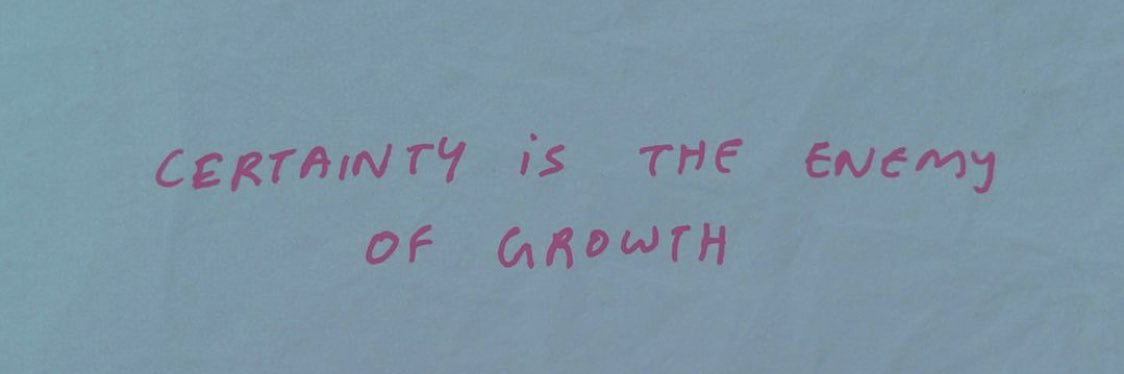 CERTAINTY is THE ENEMY
OF GROWTH